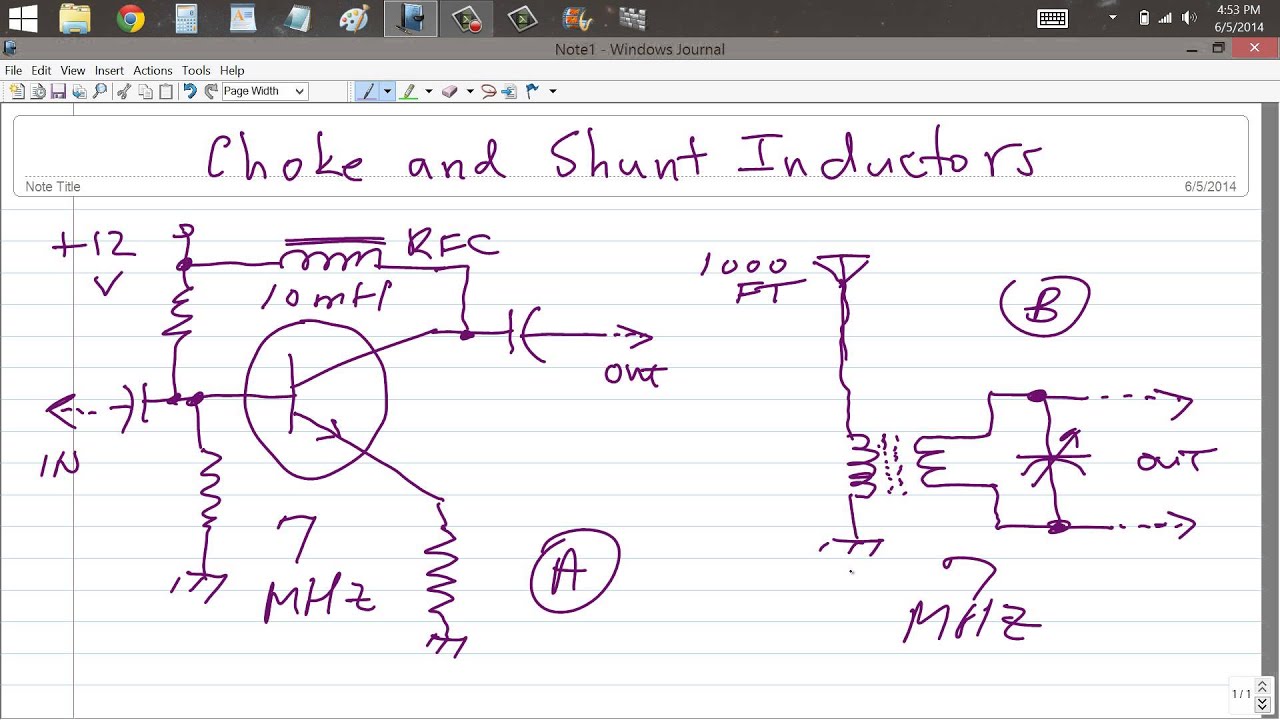 4:53 PM
6/5/2014
Note1 - Windows Journal
File Edit View Insert Actions Tools Help
Page Width
Choke and Shunt Inductors
Note Title
6/5/2014
+12
V
RFC
10mH
OUT
IN
7
MHz
A
1000
FT
B
OUT
7
MHz
1 / 1